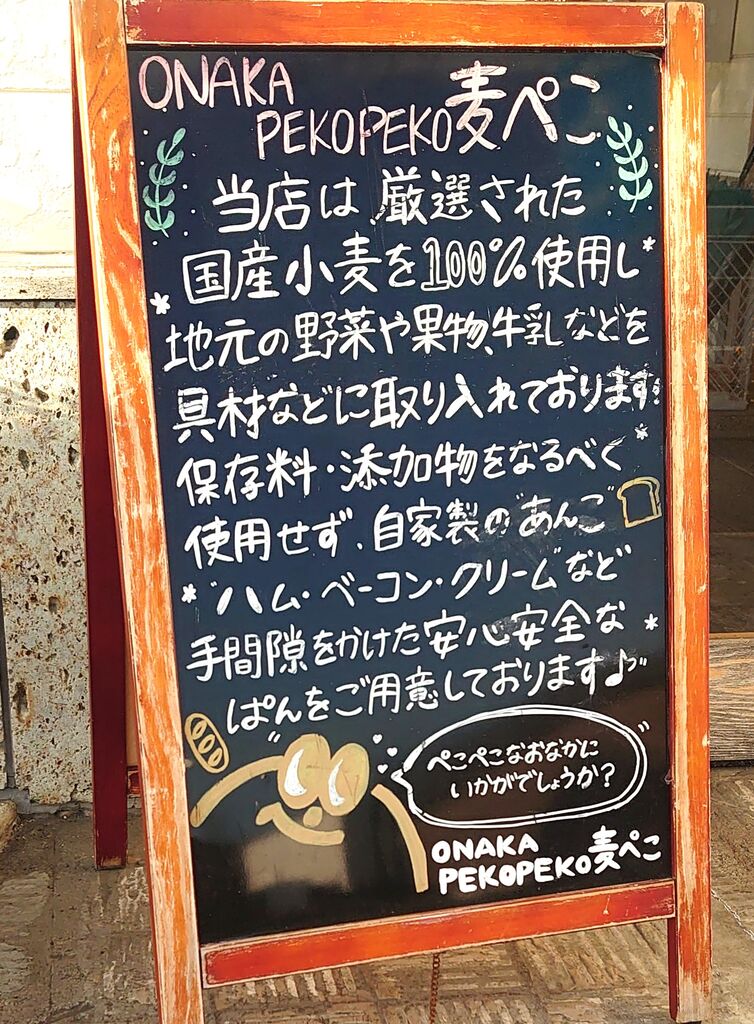 ONAKA
PEKOPEKO麦ぺこ
当店は厳選された
国産小麦を100%使用し
地元の野菜や果物、牛乳などを
具材などに取り入れております。
保存料・添加物をなるべく
使用せず、自家製の"あんこ"
"ハム・ベーコン・クリーム"など
手間隙をかけた安心安全な
"ぱんをご用意しております♪"
ぺこぺこなおなかに
いかがでしょうか?
ONAKA
PEKOPEKO麦ぺこ